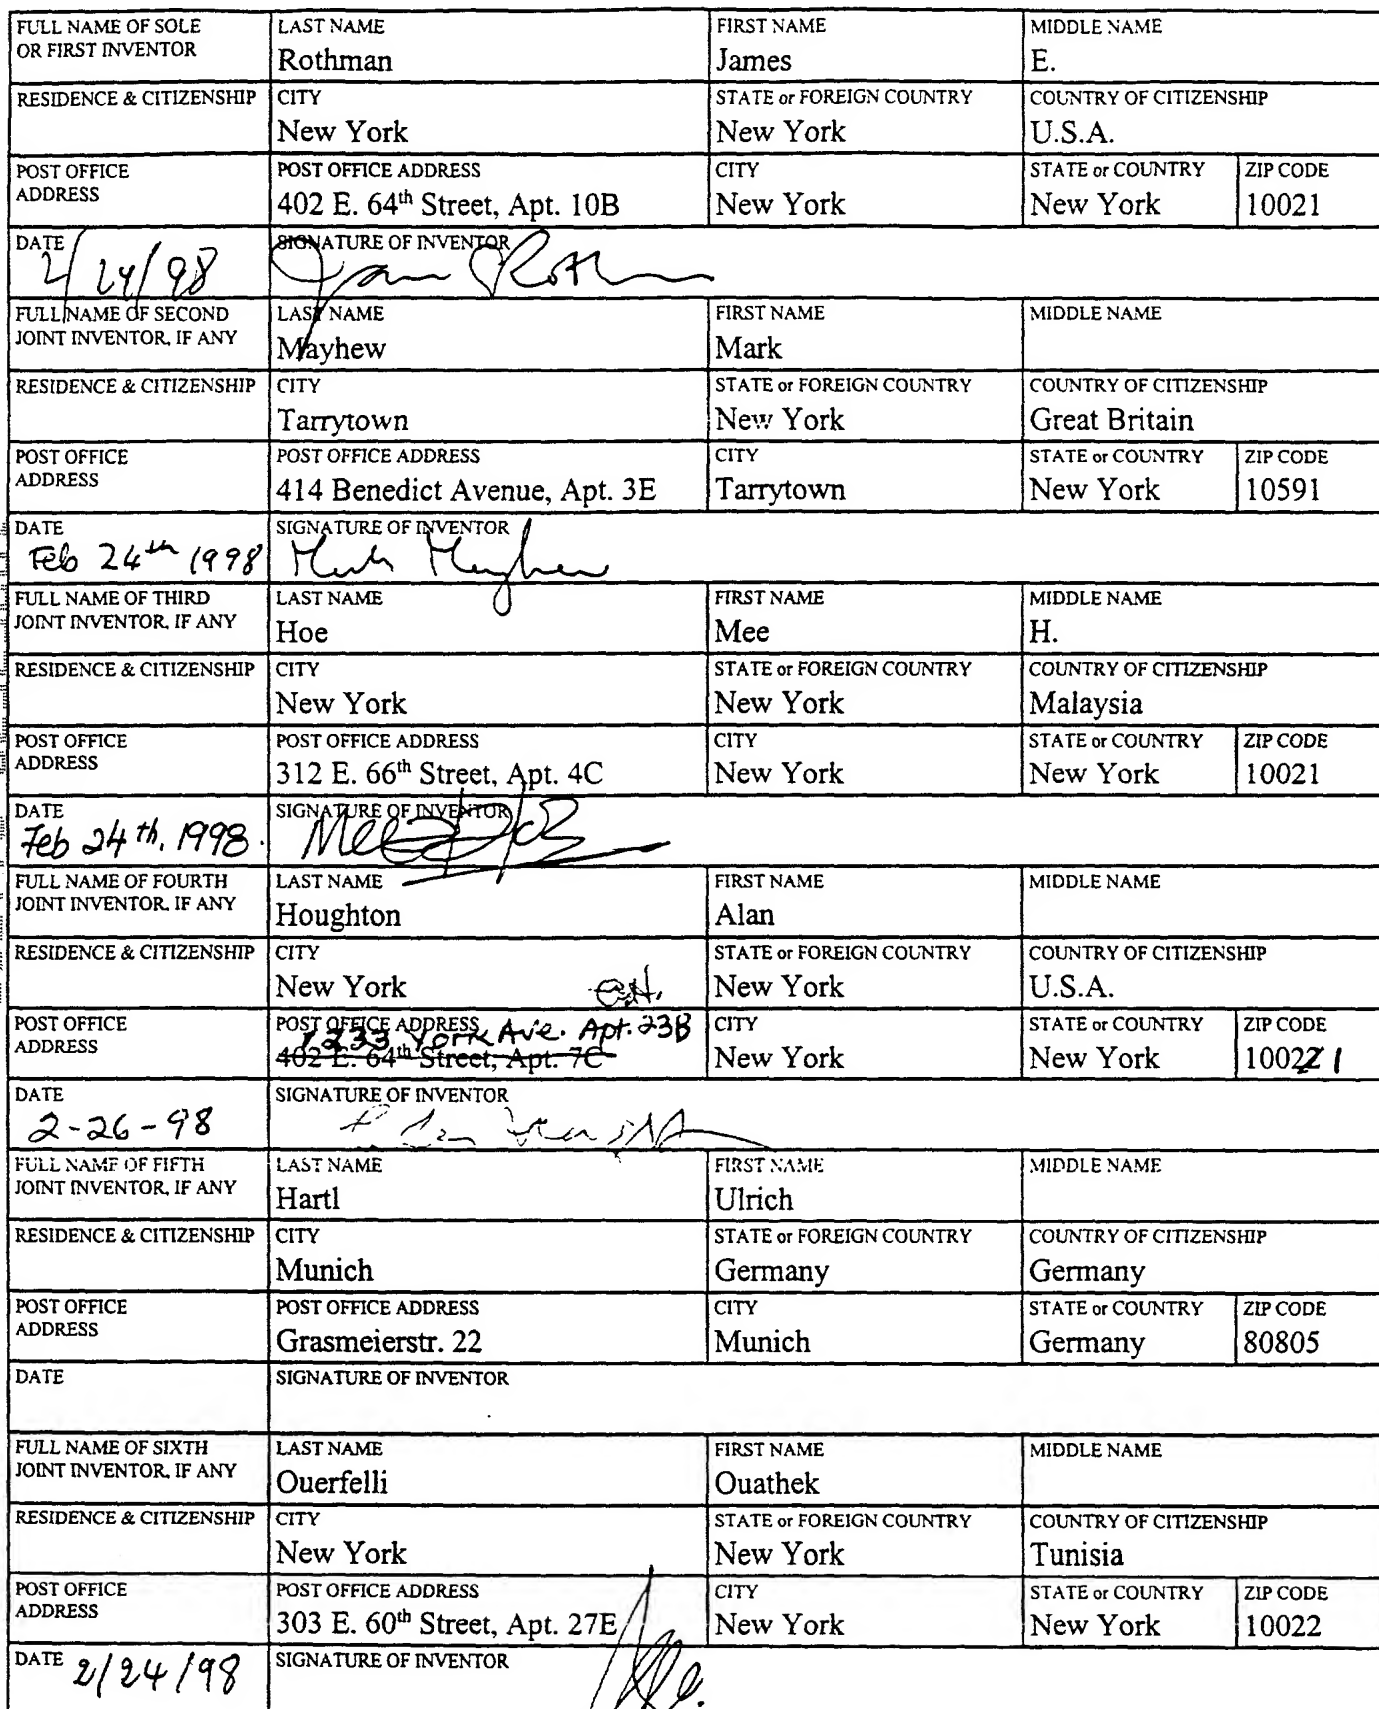 FULL NAME OF SOLE OR FIRST INVENTOR LAST NAME Rothman FIRST NAME James MIDDLE NAME E.
RESIDENCE & CITIZENSHIP CITY New York STATE or FOREIGN COUNTRY New York COUNTRY OF CITIZENSHIP U.S.A.
POST OFFICE ADDRESS POST OFFICE ADDRESS 402 E. 64th Street, Apt. 10B CITY New York STATE or COUNTRY New York ZIP CODE 10021
DATE 2/24/98 SIGNATURE OF INVENTOR
FULL NAME OF SECOND JOINT INVENTOR, IF ANY LAST NAME Mayhew FIRST NAME Mark MIDDLE NAME
RESIDENCE & CITIZENSHIP CITY Tarrytown STATE or FOREIGN COUNTRY New York COUNTRY OF CITIZENSHIP Great Britain
POST OFFICE ADDRESS POST OFFICE ADDRESS 414 Benedict Avenue, Apt. 3E CITY Tarrytown STATE or COUNTRY New York ZIP CODE 10591
DATE Feb 24th 1998 SIGNATURE OF INVENTOR Mark Mayhew
FULL NAME OF THIRD JOINT INVENTOR, IF ANY LAST NAME Hoe FIRST NAME Mee MIDDLE NAME H.
RESIDENCE & CITIZENSHIP CITY New York STATE or FOREIGN COUNTRY New York COUNTRY OF CITIZENSHIP Malaysia
POST OFFICE ADDRESS POST OFFICE ADDRESS 312 E. 66th Street, Apt. 4C CITY New York STATE or COUNTRY New York ZIP CODE 10021
DATE Feb 24th, 1998. SIGNATURE OF INVENTOR
FULL NAME OF FOURTH JOINT INVENTOR, IF ANY LAST NAME Houghton FIRST NAME Alan MIDDLE NAME
RESIDENCE & CITIZENSHIP CITY New York STATE or FOREIGN COUNTRY New York COUNTRY OF CITIZENSHIP U.S.A.
POST OFFICE ADDRESS POST OFFICE ADDRESS 1233 York Ave. Apt. 23B 402 E. 64th Street, Apt. 7C CITY New York STATE or COUNTRY New York ZIP CODE 10021
DATE 2-26-98 SIGNATURE OF INVENTOR
FULL NAME OF FIFTH JOINT INVENTOR, IF ANY LAST NAME Hartl FIRST NAME Ulrich MIDDLE NAME
RESIDENCE & CITIZENSHIP CITY Munich STATE or FOREIGN COUNTRY Germany COUNTRY OF CITIZENSHIP Germany
POST OFFICE ADDRESS POST OFFICE ADDRESS Grasmeierstr. 22 CITY Munich STATE or COUNTRY Germany ZIP CODE 80805
DATE SIGNATURE OF INVENTOR
FULL NAME OF SIXTH JOINT INVENTOR, IF ANY LAST NAME Ouerfelli FIRST NAME Ouathek MIDDLE NAME
RESIDENCE & CITIZENSHIP CITY New York STATE or FOREIGN COUNTRY New York COUNTRY OF CITIZENSHIP Tunisia
POST OFFICE ADDRESS POST OFFICE ADDRESS 303 E. 60th Street, Apt. 27E CITY New York STATE or COUNTRY New York ZIP CODE 10022
DATE 2/24/98 SIGNATURE OF INVENTOR